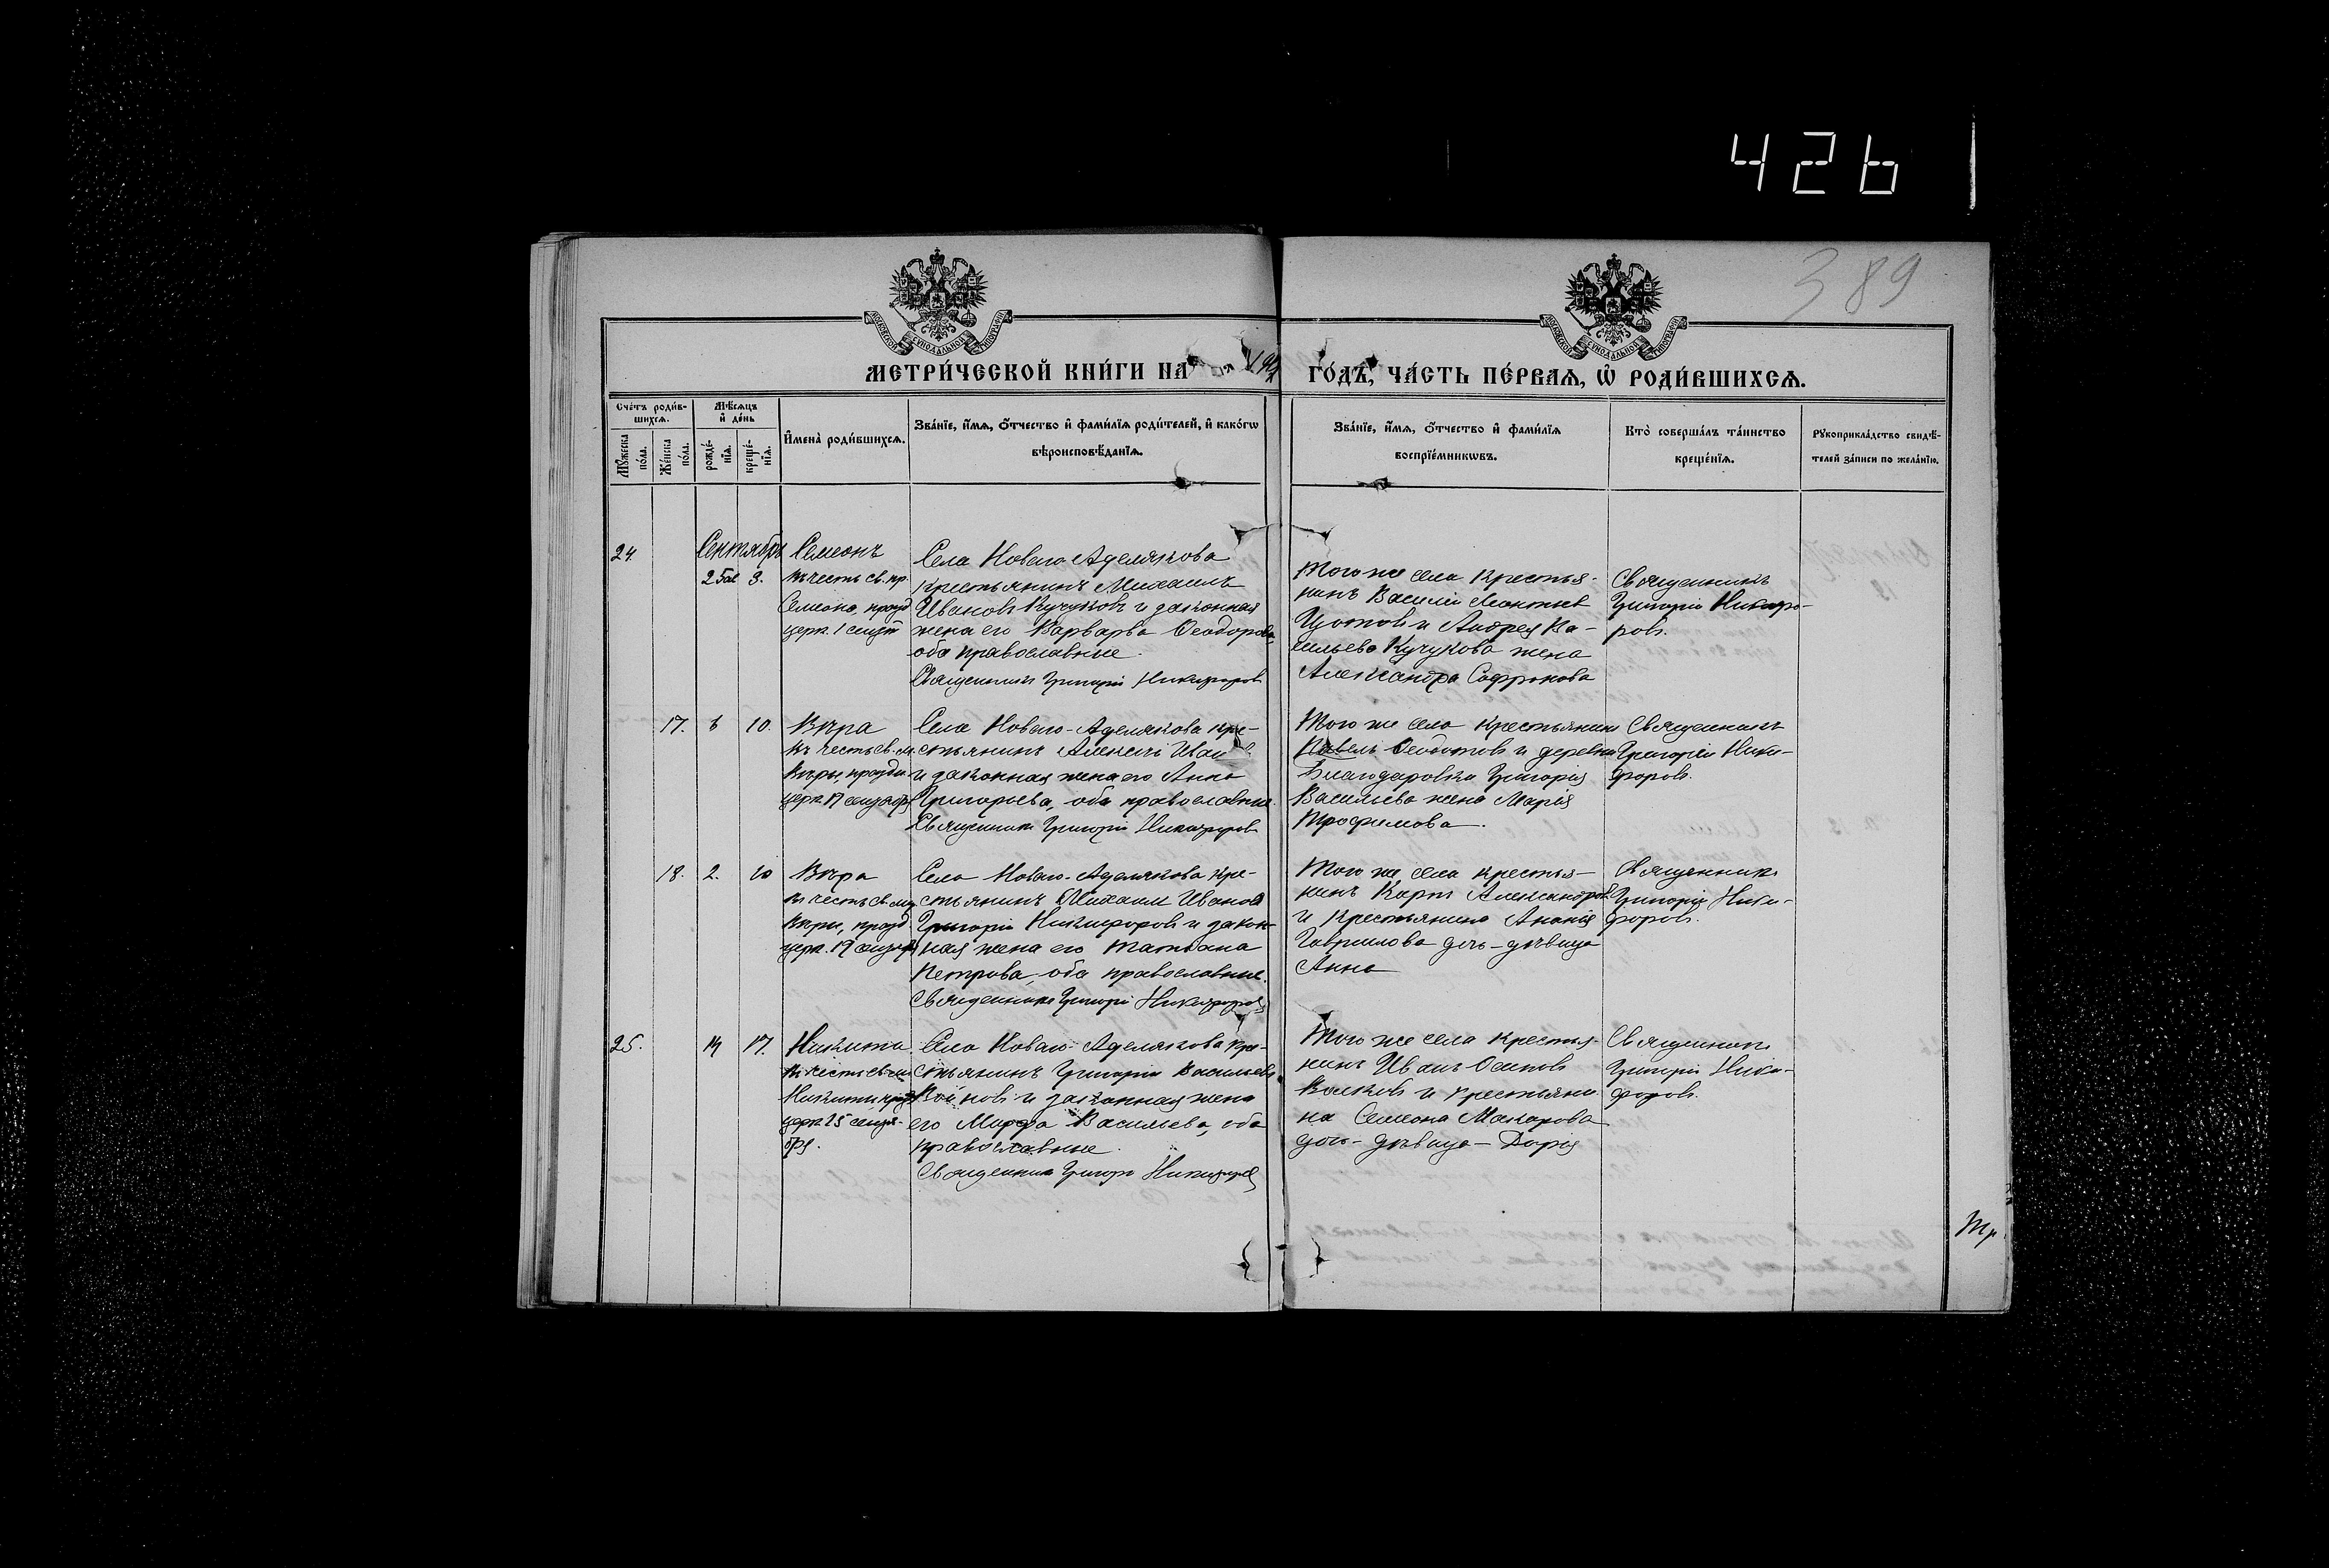 426
389
МЕТРИ́ЧЕСКОЙ КНИ́ГИ НА
ГО́ДЪ, ЧА́СТЬ ПЕ́РВАЯ, Ѿ РОДИ́ВШИХСЯ.
Сче́тъ роди́в-
шихся.
Мꙋ́жеска
по́ла.
Же́нска
по́ла.
Мѣ́сяцъ
и҆ де́нь
рожде́-
нїя.
креще́-
нїя.
И҆мена̀ роди́вшихся.
Зва́нїе, и҆́мя, ѻ҆́тчество и҆ фами́лїя роди́телей, и҆ како́гѡ
вѣроисповѣ́данїя.
Зва́нїе, и҆́мя, ѻ҆́тчество и҆ фами́лїя
воспрїе́мникѡвъ.
Кто̀ соверша́лъ та́инство
креще́нїя.
Рꙋкоприкла́дство свидѣ́-
телей за́писи по жела́нїю.
24
Сентябрь
3.
Семеонъ
въ честь св. пр.
Семеона, празд
церк. 1 сент
Села Новаго-Аделякова
крестьянинъ Михаилъ
Ивановъ Кучуковъ и законная
жена его Варвара Ѳеодорова,
оба православные.
Священникъ Григорій Никифоровъ
Того же села крестья-
нинъ Василій Леонтьев
и Андрея Ва-
сильева Кучукова жена
Александра Софронова
Священникъ
Григорій Никифо-
ровъ.
17. 6 10.
Вѣра
въ честь св. м.
Вѣры, праздн.
церк 17 сентября
Села Новаго-Аделякова кре-
стьянинъ Алексѣй Иван
и законная жена его Анна
Григорьева, оба православные.
Священникъ Григорій Никифоровъ
Того же села крестьянинъ
Павелъ Ѳедотовъ и деревни
Благодаровки Григорія
Васильева жена Марія
Трофимова.
Священникъ
Григорій Ники-
форовъ.
18. 2. 10
Вѣра
въ честь св. муч.
Вѣры, празд
церк. 17 сентября
Села Новаго-Аделякова кре-
стьянинъ Михаилъ Ивановъ
Григорій Никифоровъ и закон-
ная жена его Татьяна
Петрова, оба православные.
Священникъ Григорій Никифоровъ
Того же села крестья-
нинъ Карпъ Александровъ
и крестьянина Ананія
Гаврилова дочь-дѣвица
Анна
Священникъ
Григорій Ники-
форовъ.
25. 14 17.
Никита
въ честь св.
Никиты празд
церк 15 сентя-
бря.
Села Новаго-Аделякова кре-
стьянинъ Григорій Васильевъ
Войновъ и законная жена
его Марфа Васильева, оба
православные.
Священникъ Григорій Никифоровъ
Того же села крестья-
нинъ Иванъ Осиповъ
Волковъ и крестьяни
на Семена Макарова
дочь-дѣвица-Дарія
Священникъ
Григорій Ники-
форовъ.
Тр.